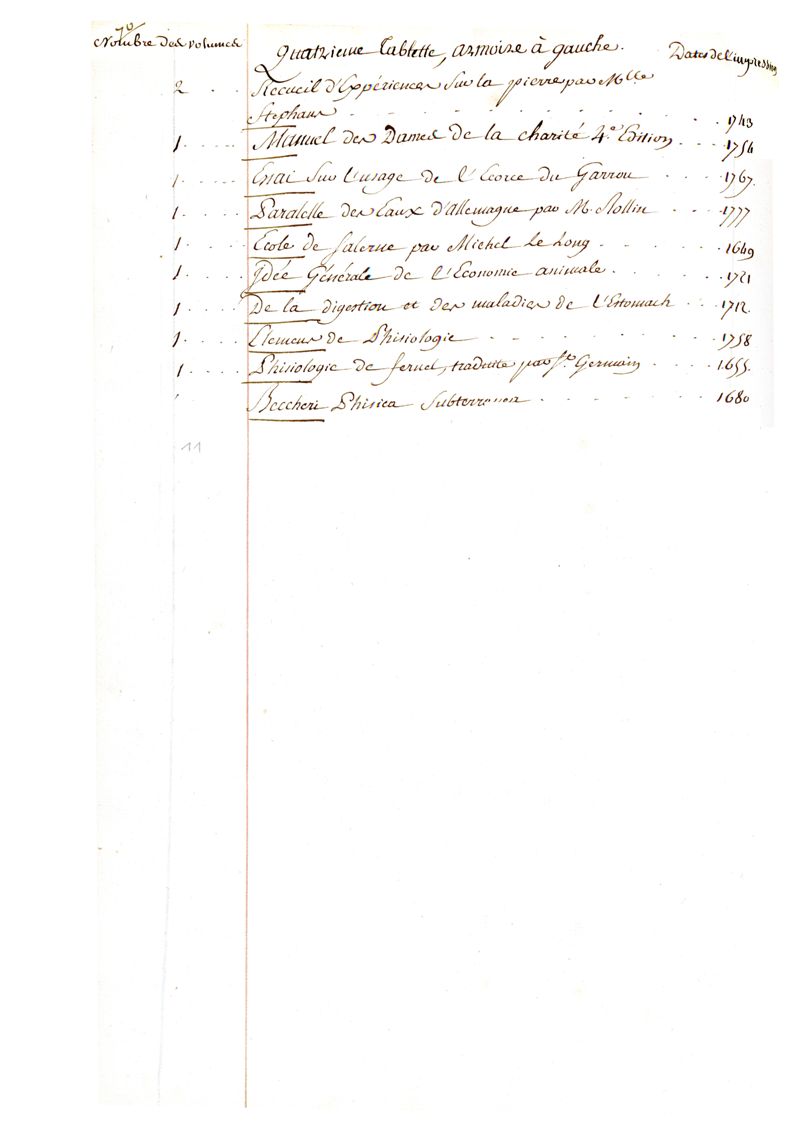 70
Nombre des volumes Quatrieme Tablette, armoire à gauche. Dates de l'impression
2 . . Recueil d'Expériences sur la pierre par Mlle
Stephans . . . . . . . . 1743
1 . . . . Manuel des Dames de la charité 4.e Edition . . . 1754
1 . . . . Essai sur l'usage de l'Ecorce du Garrou . . . . 1767.
1 . . . . Paralelle des Eaux d'Allemagne par M. . . . 1777
1 . . . . Ecole de Salerne par Michel Le Long . . . . . 1649
1 . . . . Idée Générale de l'Economie animale . . . . . 1721
1 . . . . De la digestion et des maladies de l'Estomach . . . 1712.
1 . . . . Elemens de Phisiologie . . . . . . . 1758
1 . . . . Phisiologie de fernel, traduite par St. Germain . . . . 1655.
Beccheri Phisica Subterranea . . . . . . 1680
11